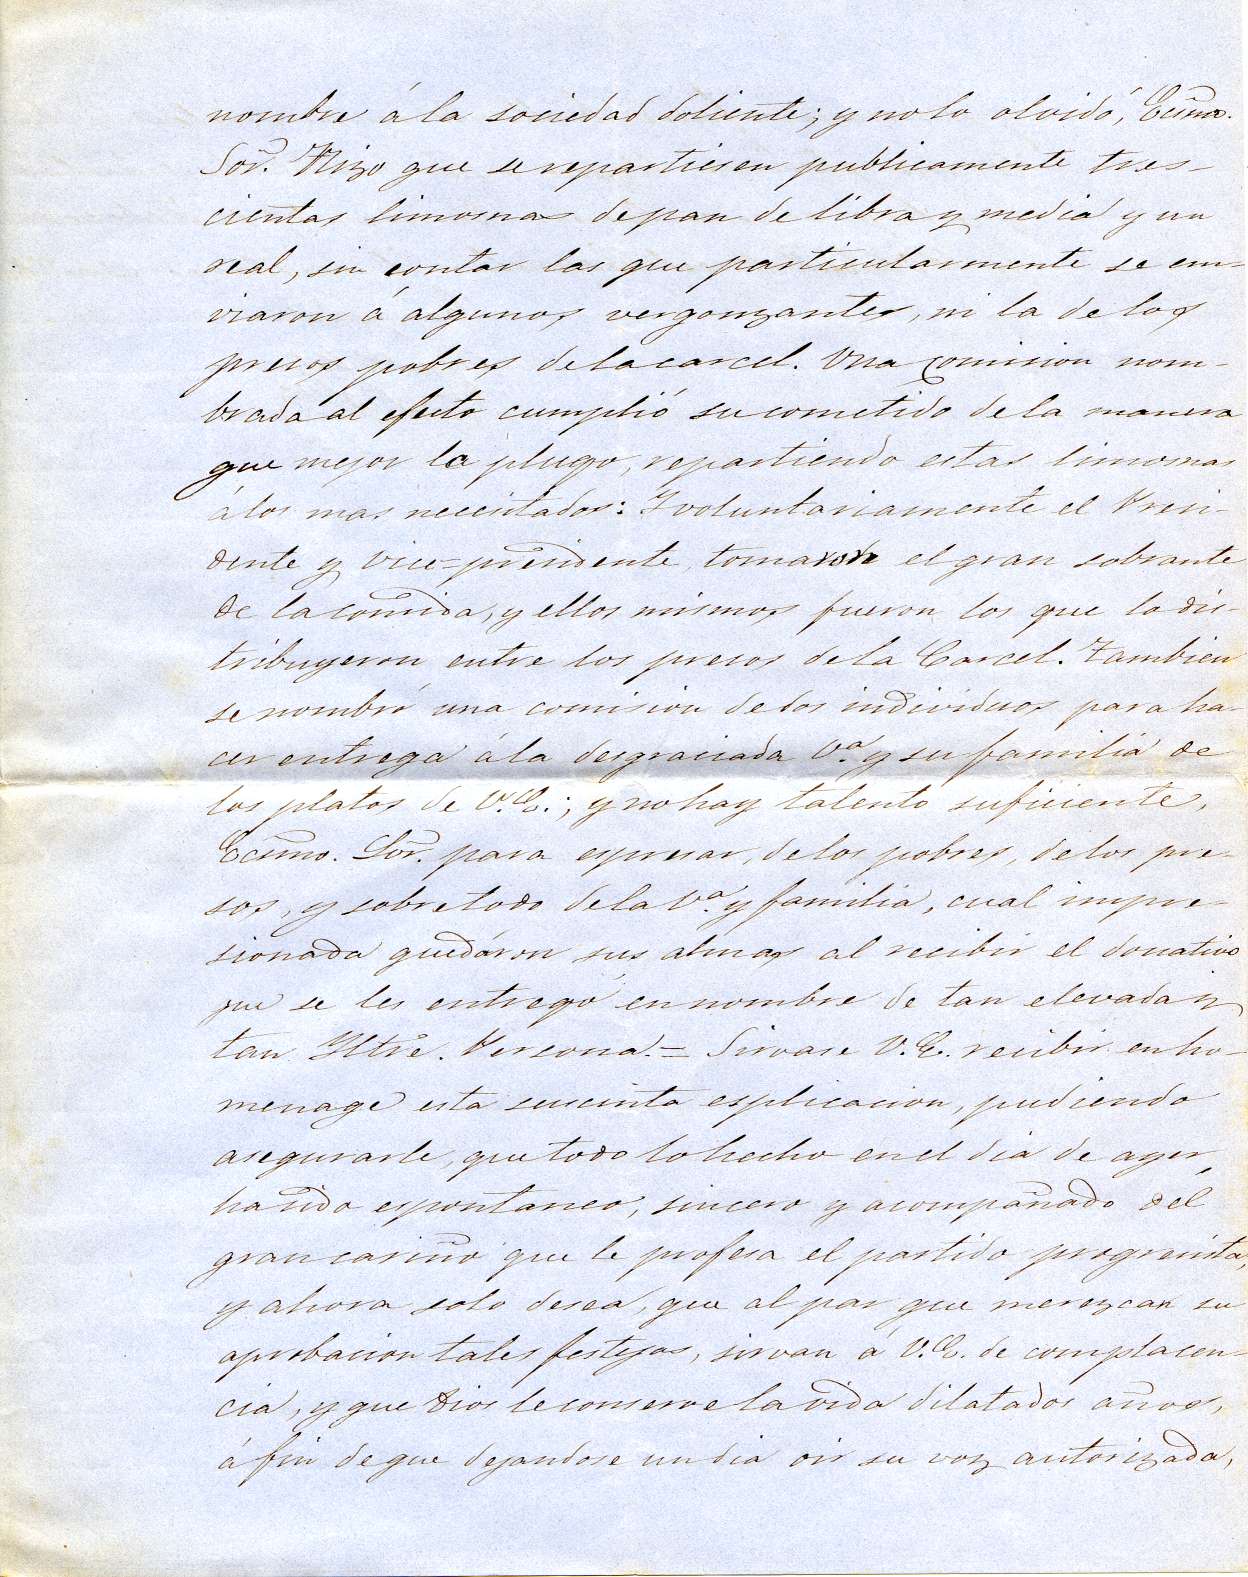 nombre á la sociedad doliente; y no lo olvidó, Ecsmo.
Sor. Hizo que se repartiesen publicamente tres-
cientas limosnas de pan de libra y media y un
real, sin contar las que particularmente se em-
viaron á algunos vergonzantes, ni la de los
presos pobres de la carcel. Una comision nom-
brada al efecto cumplió su cometido de la manera
que mejor la plugo, repartiendo estas limosnas
á los mas necesitados: Y voluntariamente el Presi-
dente y vice=presidente, tomaron el gran sobrante
de la comida, y ellos mismos fueron los que lo dis-
tribuyeron entre los presos de la Carcel. Tambien
se nombró una comision de dos individuos para ha-
cer entrega á la desgraciada V.ª y su familia de
los platos de V.E.; y no hay talento suficiente,
Ecsmo. Sor. para espresar, de los pobres, de los pre-
sos, y sobre todo de la V.ª y familia, cual impre-
sionada quedáron sus almas al recibir el donativo
que se les entregó en nombre de tan elevada y
tan Yltre. Persona.= Sirvase V.E. recibir en ho-
menage esta succinta esplicacion, pudiendo
asegurarle, que todo lo hecho en el dia de ayer,
ha sido espontaneo, sincero y acompañado del
gran cariño que le profesa el partido progresista,
y ahora solo desea, que al par que merezcan su
aprobacion tales festejos, sirvan á V.E. de complacen-
cia, y que Dios le conserve la vida dilatados años,
á fin de que dejandose un dia oir su voz autorizada,